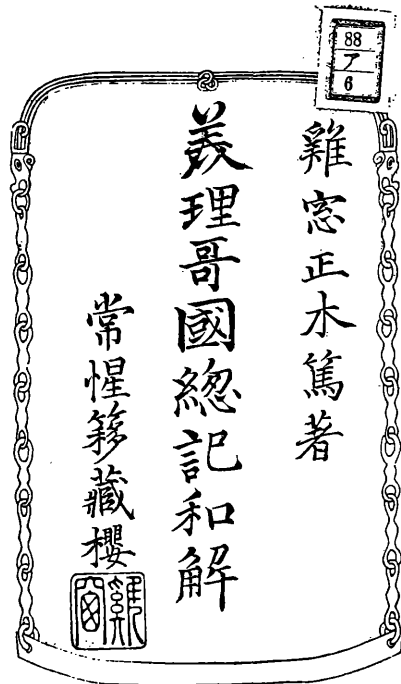 88
ア
6
雞窓正木篤著
美理哥國總記和解
常惺簃藏櫻
雞窗